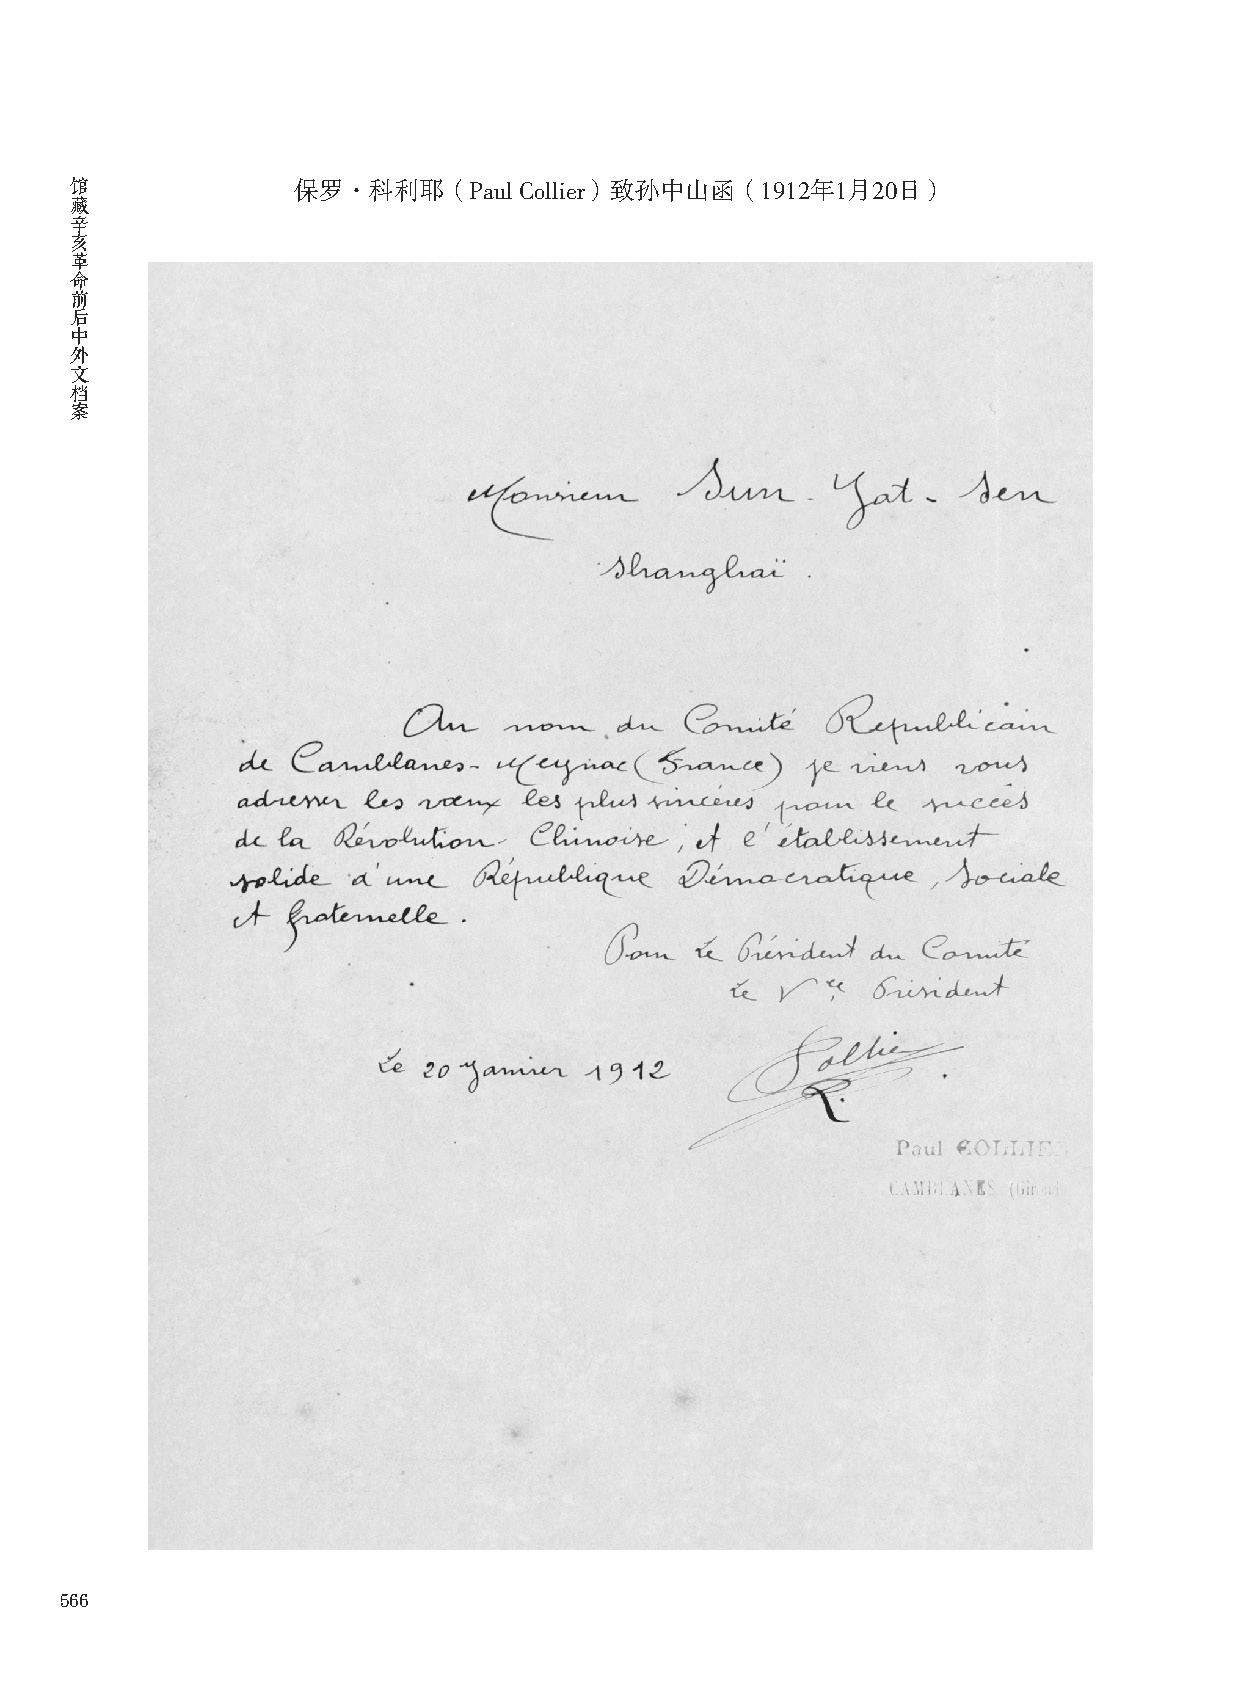 保罗·科利耶（Paul Collier）致孙中山函（1912年1月20日）
馆藏辛亥革命前后中外文档案
Monsieur Sun-Yat-Sen
Shanghaï.
Au nom du Comité Republicain
de Camblanes-Meynac (France) je viens vous
adresser les vœux les plus sincères pour le succès
de la Révolution Chinoise, et l'établissement
solide d'une République Démocratique, Sociale
et fraternelle.
Pour Le Président du Comité
Le Vce Président
Le 20 Janvier 1912
Collier
Paul COLLIE
CAMBLANES (Girond
566